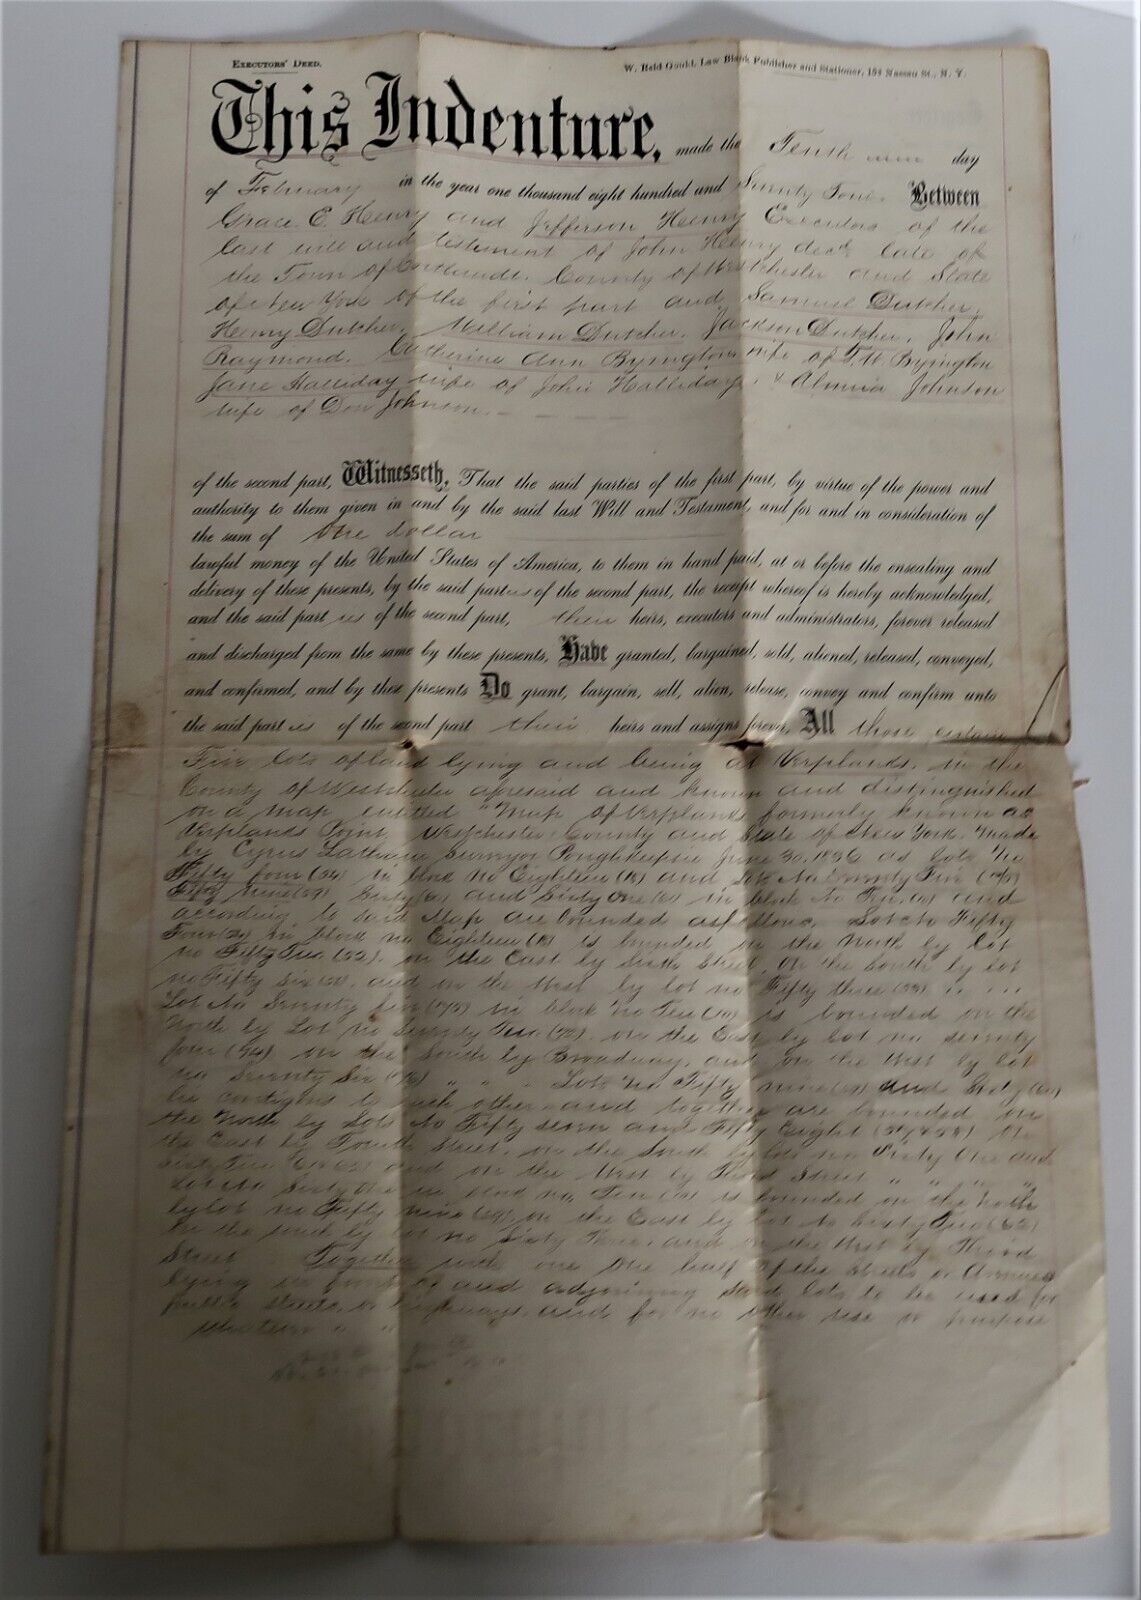 EXECUTORS' DEED.
W. Reid Gould, Law Blank Publisher and Stationer, 154 Nassau St., N. Y.
This Indenture, made the Tenth day
of February in the year one thousand eight hundred and Seventy Four Between
Grace E. Henry and Jefferson Henry Executors of the
last will and testament of John Henry decd late of
the Town of Cortlandt. County of Westchester and State
of New York of the first part and Samuel Dutcher,
Henry Dutcher, William Dutcher, Jackson Dutcher, John
Raymond. Catherine Ann Byington wife of T. W. Byington
Jane Halliday wife of John Halliday, & Almira Johnson
wife of Don Johnson.
of the second part, Witnesseth, That the said parties of the first part, by virtue of the power and
authority to them given in and by the said last Will and Testament, and for and in consideration of
the sum of One dollar
lawful money of the United States of America, to them in hand paid, at or before the ensealing and
delivery of these presents, by the said parties of the second part, the receipt whereof is hereby acknowledged,
and the said parties of the second part, their heirs, executors and administrators, forever released
and discharged from the same by these presents, Have granted, bargained, sold, aliened, released, conveyed,
and confirmed, and by these presents Do grant, bargain, sell, alien, release, convey and confirm unto
the said parties of the second part their heirs and assigns forever, All those certain
Five lots of land lying and being at Verplancks. in the
County of Westchester aforesaid and known and distinguished
on a map entitled "Map of Verplancks formerly known as
Verplancks Point, Westchester County and State of New York. Made
by Cyrus Surveyor Poughkeepsie June 30, 1836 as lots No
Fifty four (54) in block no Eighteen (18) and Lots No Seventy Five (75)
Fifty Nine (59) Sixty (60) and Sixty One (61) in block No Ten (10) and
according to said Map are bounded as follows. Lot No Fifty
Four (54) in block no Eighteen (18) is bounded on the North by lot
no Fifty Two (52). on the East by Sixth Street, on the South by lot
no Fifty Six (56), and on the West by lot no Fifty three (53)
Lot No Seventy five (75) in block no Ten (10) is bounded on the
North by Lot no Seventy Two (72). on the East by lot no seventy
four (74). on the South by Broadway, and on the West by lot
no Seventy Six (76) " " " Lots No Fifty nine (59) and Sixty (60)
lie contigious to each other and together are bounded on
the North by Lots No Fifty seven and Fifty Eight (57 & 58) on
the East by Fourth Street, on the South by lots no Sixty One and
Sixty Two (61 & 62) and on the West by Third Street " " " "
Lot No Sixty One in block no, Ten (10) is bounded on the North
by lot no Fifty nine (59) on the East by lot no Sixty Two (62)
on the South by lot no Sixty and on the West by Third
Street Together with one half of the streets or Avenues
lying in front of and adjoining said lots to be used for
public streets, or highways, and for no other use or purpose
whatever " "